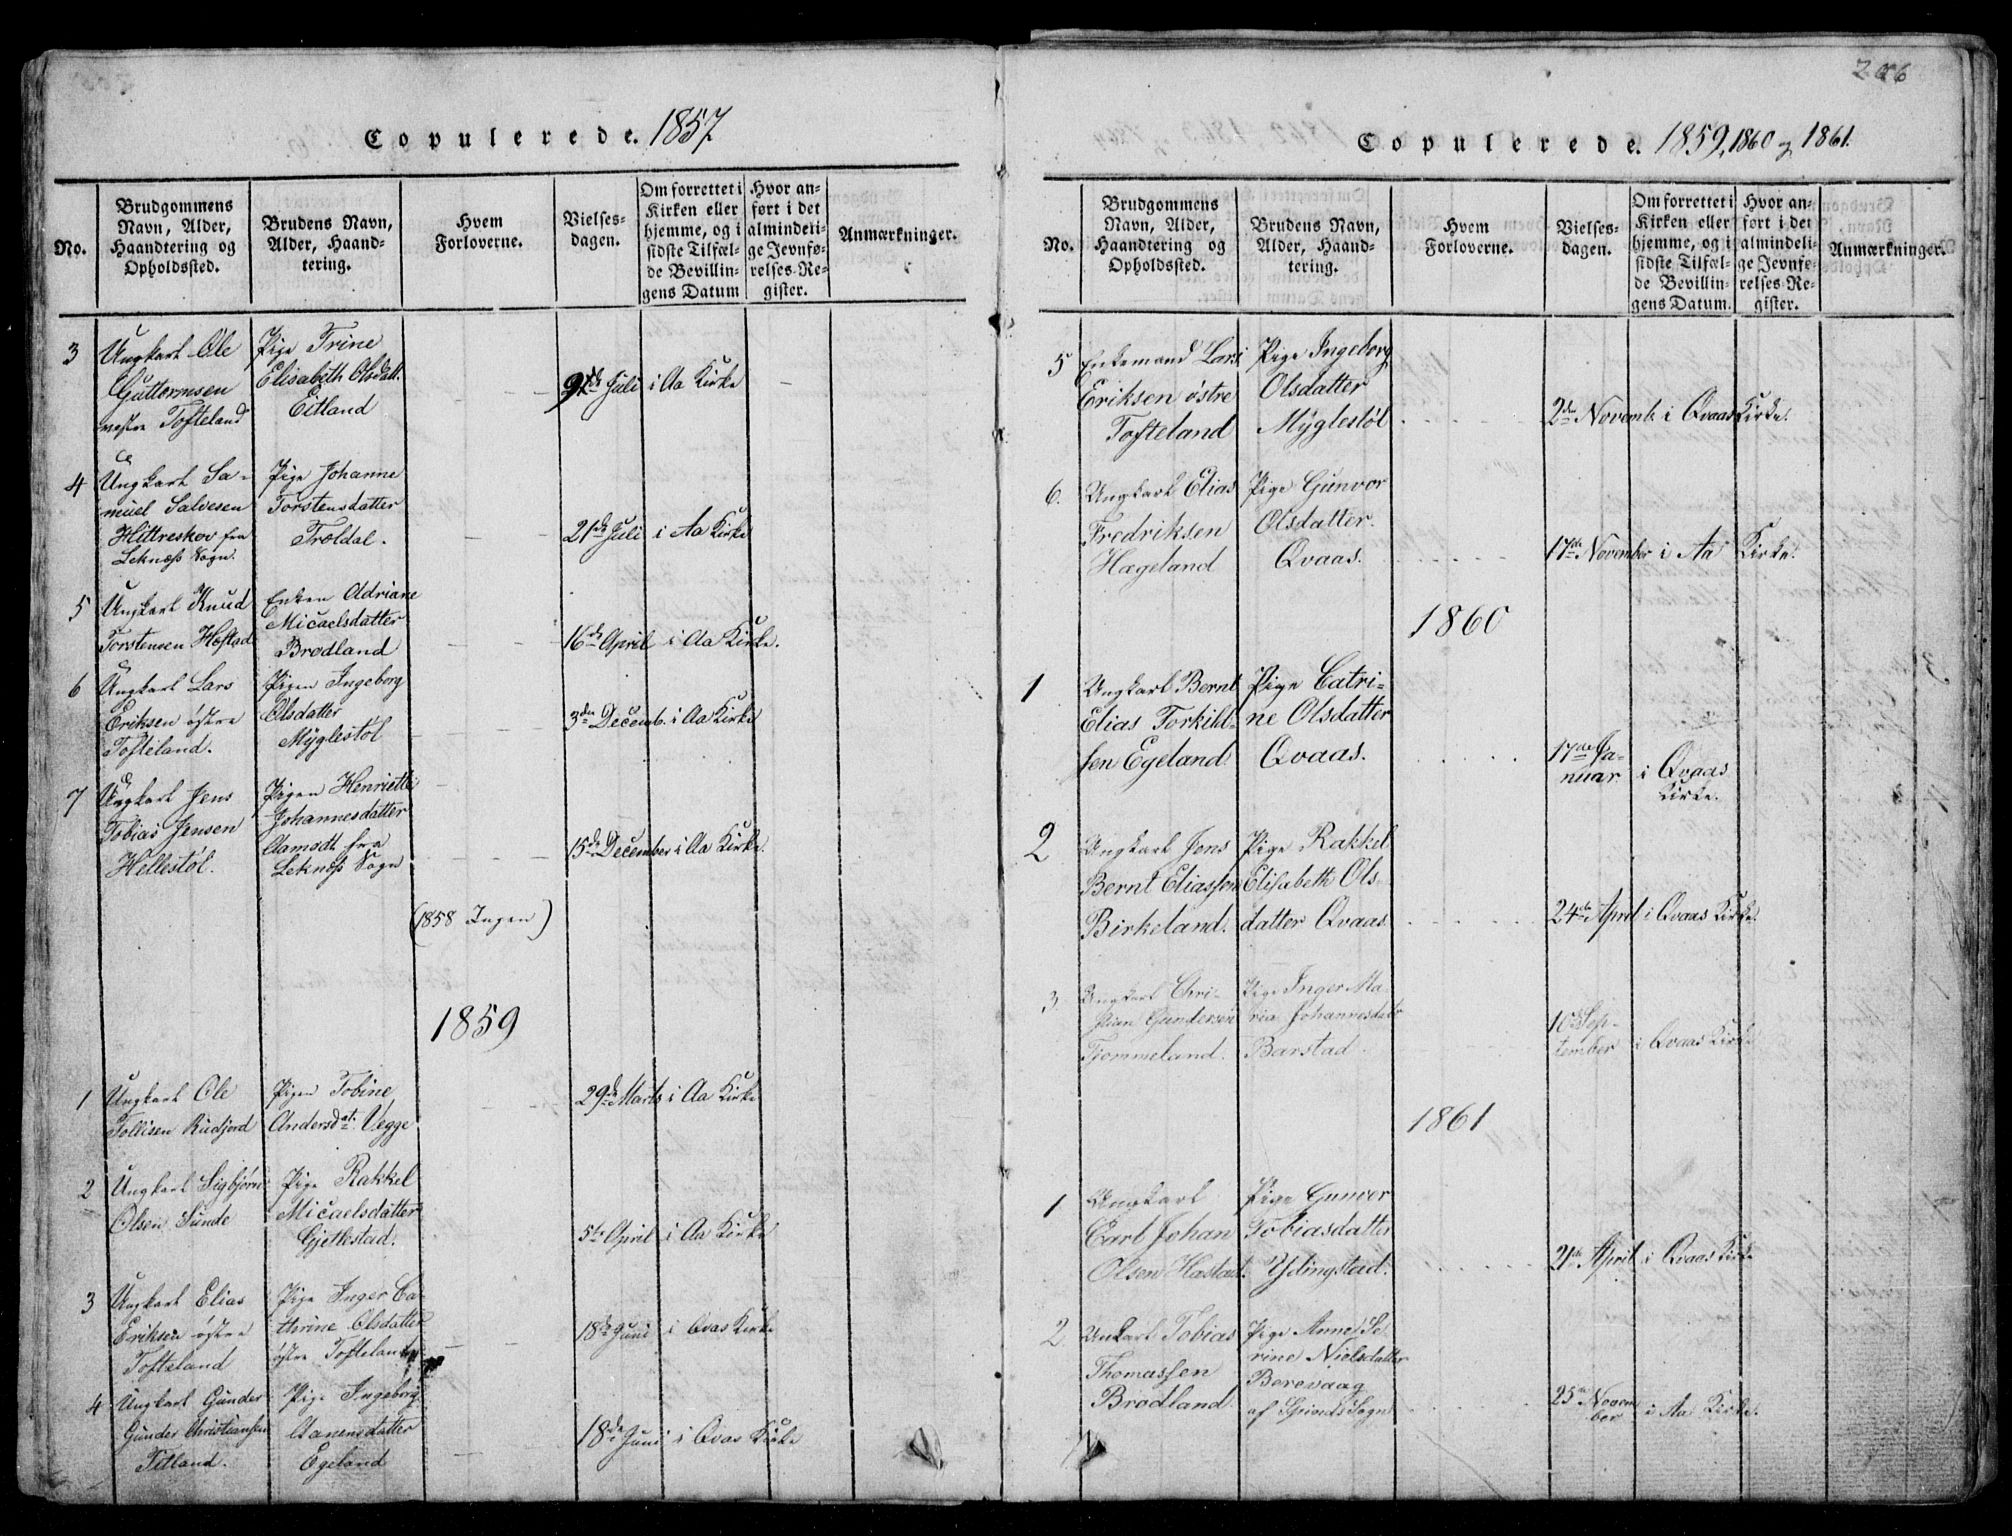 Copulerede. 1857
No.
Brudgommens
Navn, Alder,
Haandtering og
Opholdssted.
Brudens Navn,
Alder, Haand-
tering.
Hvem
Forloverne.
Vielses-
dagen.
Om forrettet i
Kirken eller
hjemme, og i
sidste Tilfæl-
de Bevillin-
gens Datum
Hvor an-
ført i det
almindeli-
ge Jevnfø-
relses-Re-
gister.
Anmærkninger.
3
Ungkarl Ole
Guttormsen
vestre Tofteland
Pige Trine
Elisabeth Olsdatt.
Eitland
Juli i Aa Kirke
4
Ungkarl Sa-
muel Salvesen
Hittreskov fra
Leknæss Sogn.
Pige Johanne
Torstensdatter
Troldal.
21de Juli i Aa Kirke
5
Ungkarl Knud
Torstensen Høstad
Enken Adriane
Micaelsdatter
Brødland
16de April i Aa Kirke.
6
Ungkarl Lars
Eriksen østre
Tofteland.
Pigen Ingeborg
Olsdatter
Myglestøl
3den Decemb. i Aa Kirke
7
Ungkarl Jens
Tobias Jensen
Hellestøl.
Pigen Henriette
Johannesdatter
Aamodt fra
Leknæss Sogn
15de December i Aa Kirke.
(1858 Ingen)
1859
1
Ungkarl Ole
Tollisen Rudjord
Pigen Tobine
Andersdat. Vegge
29de Marts i Aa Kirke
2
Ungkarl Sigbjørn
Olsen Sunde
Pige Rakkel
Micaelsdatter
Gjetlestad.
5te April i Aa Kirke
3
Ungkarl Elias
Eriksen østre
Tofteland
Pige Inger Ca-
thrine Olsdatter
østre Tofteland
18de Juni i Qvas Kirke
4
Ungkarl Gunder
Gunder Christiansen
Titland.
Pige Ingeborg
Aanensdatter
Egeland
18de Juni i Qvas Kirke
206
Copulerede. 1859, 1860 og 1861.
No.
Brudgommens
Navn, Alder,
Haandtering og
Opholdssted.
Brudens Navn,
Alder, Haand-
tering.
Hvem
Forloverne.
Vielses-
dagen.
Om forrettet i
Kirken eller
hjemme, og i
sidste Tilfæl-
de Bevillin-
gens Datum.
Hvor an-
ført i det
almindeli-
ge Jevnfø-
relses-Re-
gister.
Anmærkninger.
5
Enkemand Lars
Eriksen østre
Tofteland
Pige Ingeborg
Olsdatter
Myglestøl
2den Novemb. i Qvaas Kirke.
6.
Ungkarl Elias
Fredriksen
Hægeland
Pige Gunvor
Olsdatter.
Qvaas.
17de November i Aa Kirke.
1860
1
Ungkarl Bernt
Elias Torkild-
sen Egeland.
Pige Catri-
ne Olsdatter
Qvaas.
17de Ja-
nuar i Qvaas
Kirke.
2
Ungkarl Jens
Bernt Eliassen
Birkeland.
Pige Rakkel
Elisabeth Ols-
datter Qvaas.
24de April i Qvaas Kirke.
3.
Ungkarl Chri-
stian Gundersen
Tjommeland.
Pige Inger Ma-
ria Johannesdatr
Barstad.
10de Sep-
tember i Qvaas Kirke
1861
1
Ungkarl
Carl Johan
Olsen Hæstad.
Pige Gunvor
Tobiasdatter
Ydingstad.
21de April i Qvaas Kirke
2.
Unkarl Tobias
Thomassen
Brødland.
Pige Anne Se-
rine Nielsdatter
Berevaag
af Spinds Sogn
25de Novem-
ber i Aa Kirke.